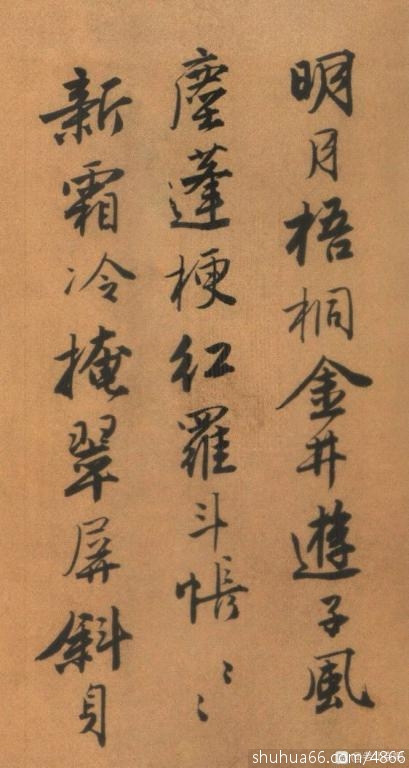 明月梧桐金井遊子風
塵蓬梗紅羅斗帳〻〻
新霜冷掩翠屏斜貝
shuhua66.com/4866